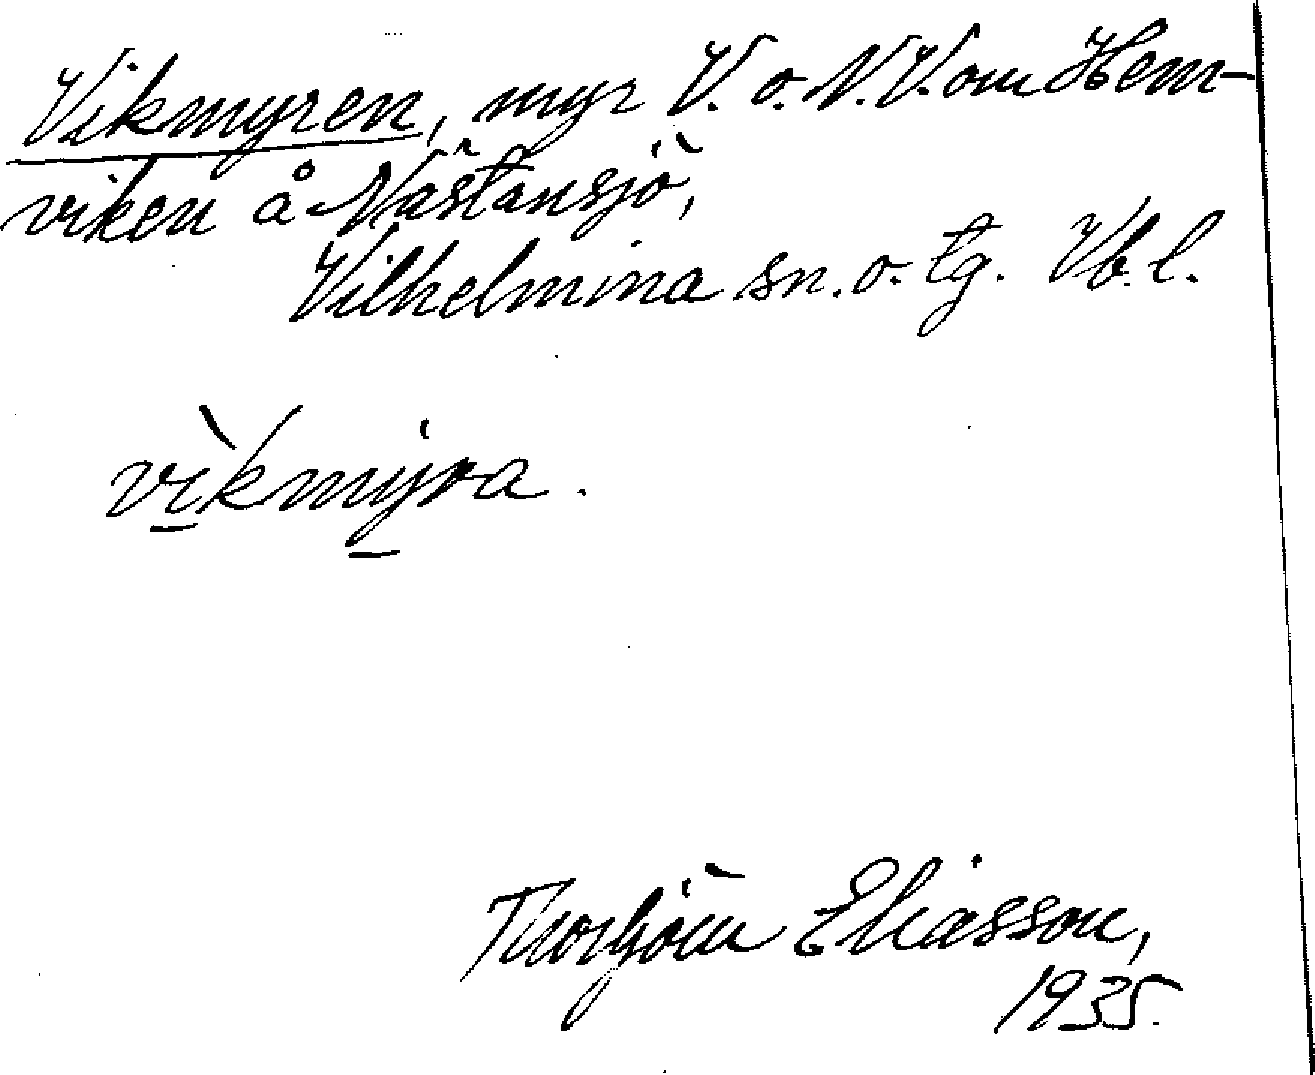 Vikmyren, myr V. o. N.V. om Hem-
viken å Nästansjö,
Vilhelmina sn. o. tg. Vb. l.
vìkmýra.
Eliasson,
1935.